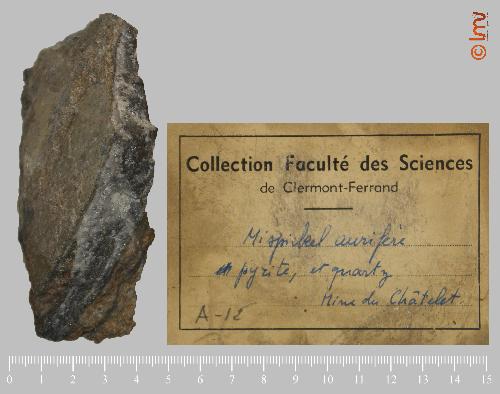 © lmv
Collection Faculté des Sciences
de Clermont-Ferrand
Mispickel aurifère
pyrite, et quartz
Mine du Châtelet.
A-12
0 1 2 3 4 5 6 7 8 9 10 11 12 13 14 15